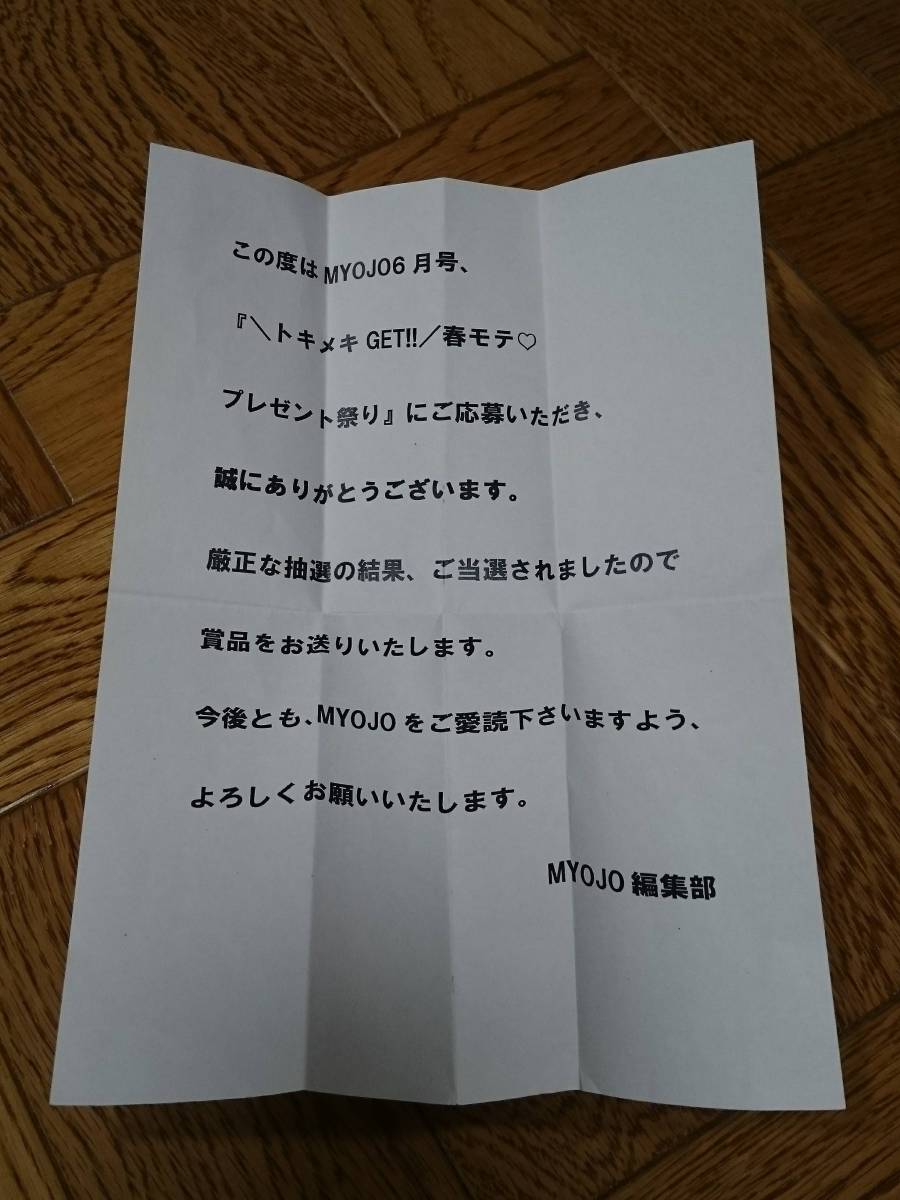 この度はMYOJO6月号、
『＼トキメキGET!!／春モテ♡
プレゼント祭り』にご応募いただき、
誠にありがとうございます。
厳正な抽選の結果、ご当選されましたので
賞品をお送りいたします。
今後とも、MYOJOをご愛読下さいますよう、
よろしくお願いいたします。
MYOJO編集部